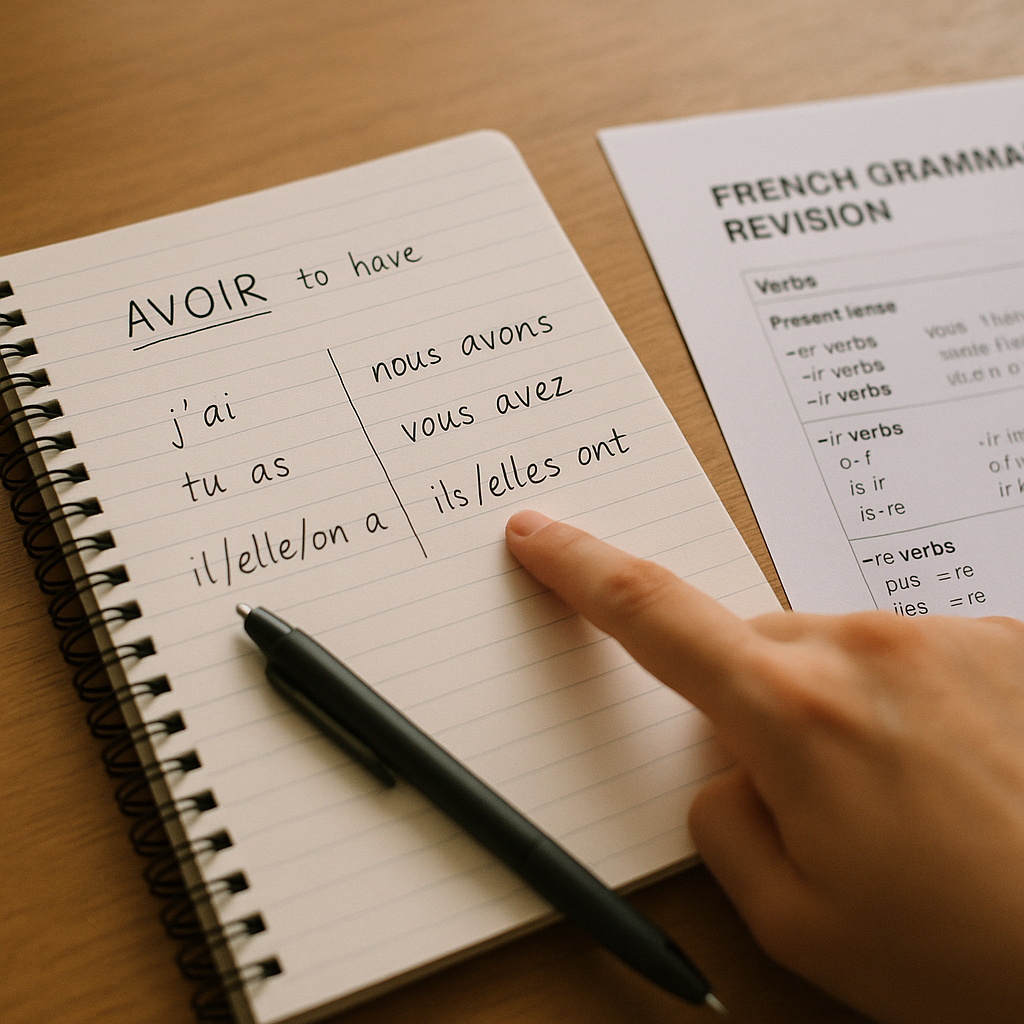 AVOIR to have
j'ai
tu as
il/elle/on a
nous avons
vous avez
ils/elles ont
FRENCH GRAMMA
REVISION
Verbs
Present lense
-er verbs vous
-ir verbs
-ir verbs
-ir verbs
o-f
is ir
is-re
-re verbs
pus =re
iies =re